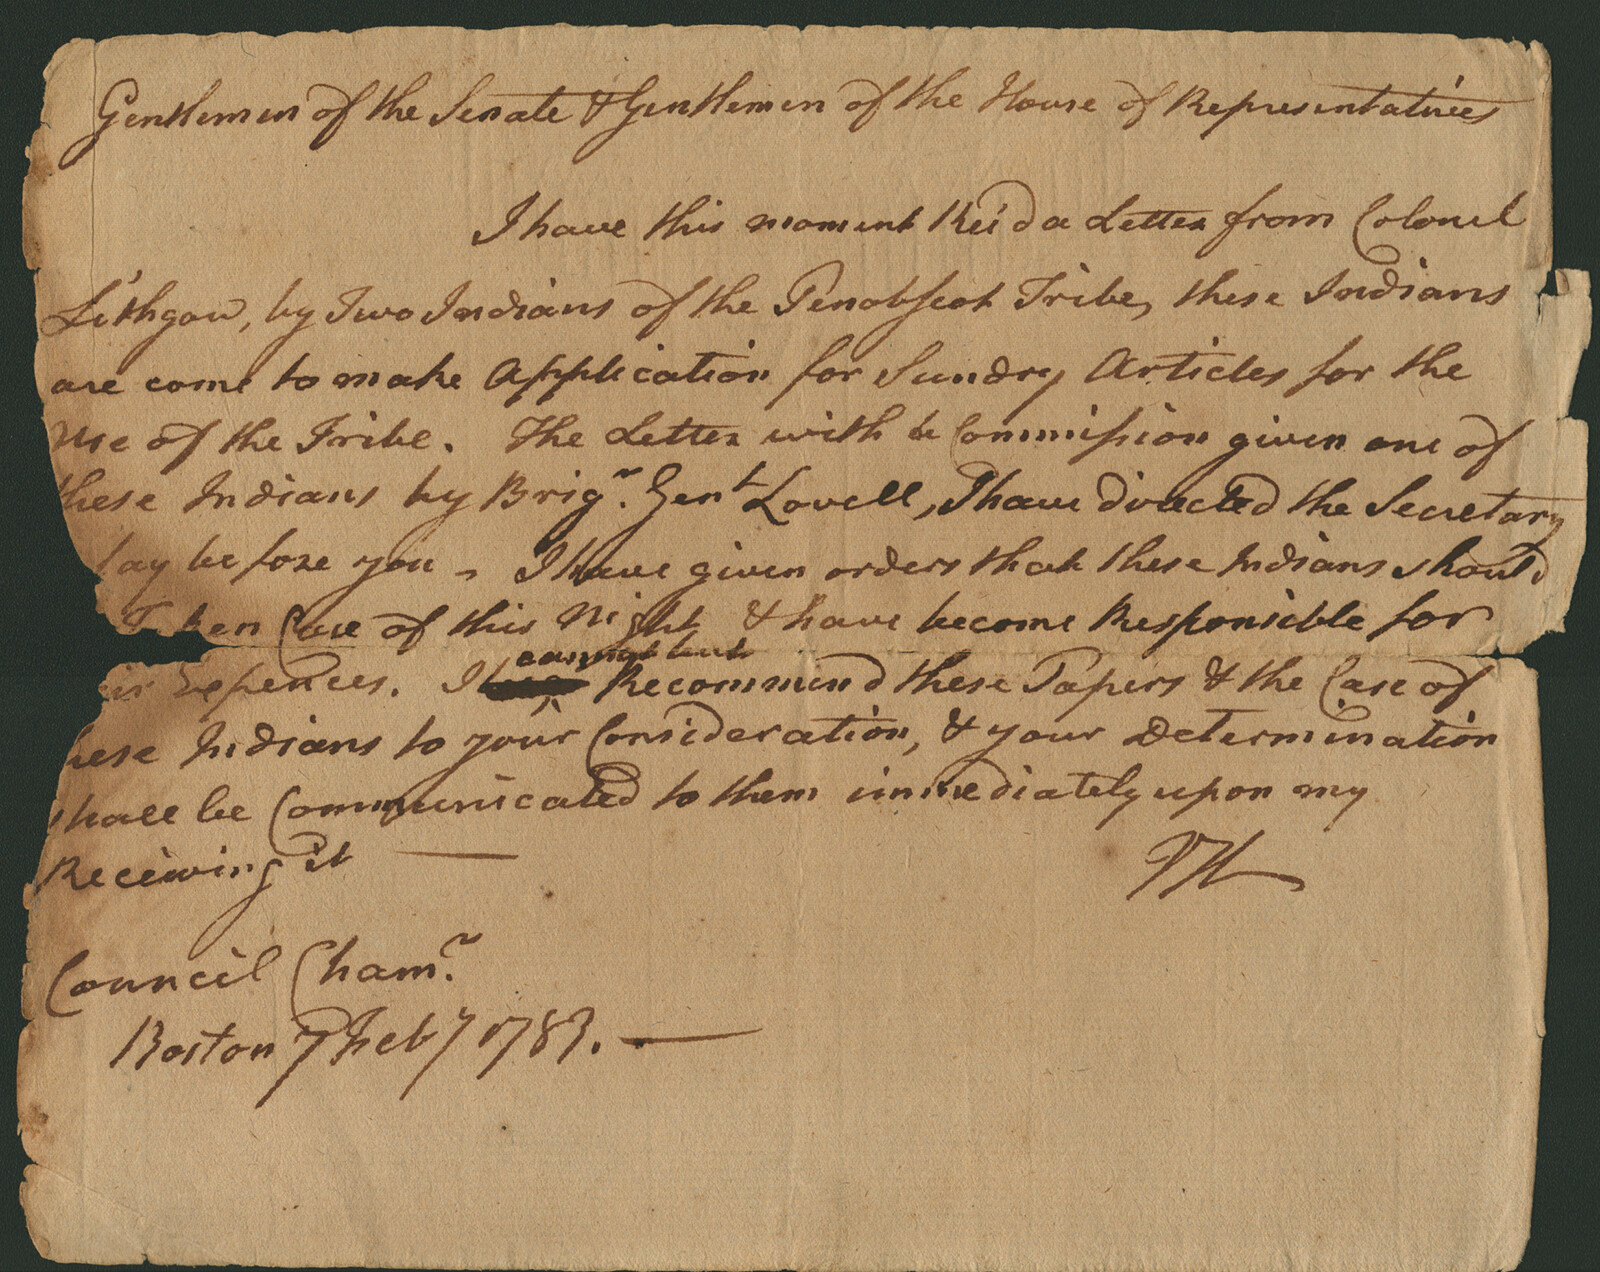 Gentlemen of the Senate & Gentlemen of the House of Representatives
I have this moment Rec'd a Letter from Colonel
Lithgow, by Two Indians of the Penobscot Tribe, these Indians
are come to make Application for Sundry Articles for the
Use of the Tribe. The Letter with Commission given one of
these Indians by Brigr. Genl Lovell, I have directed the Secretary
lay before you - I have given orders that these Indians should
Taken Care of this Night & have become Responsible for
eir Expences. I cannot but Recommend these Papers & the Case of
hese Indians to your Consideration, & your Determination
shall be Communicated to them immediately upon my
Receiving it
JH
Council Chamr.
Boston 7 Feby 1783.